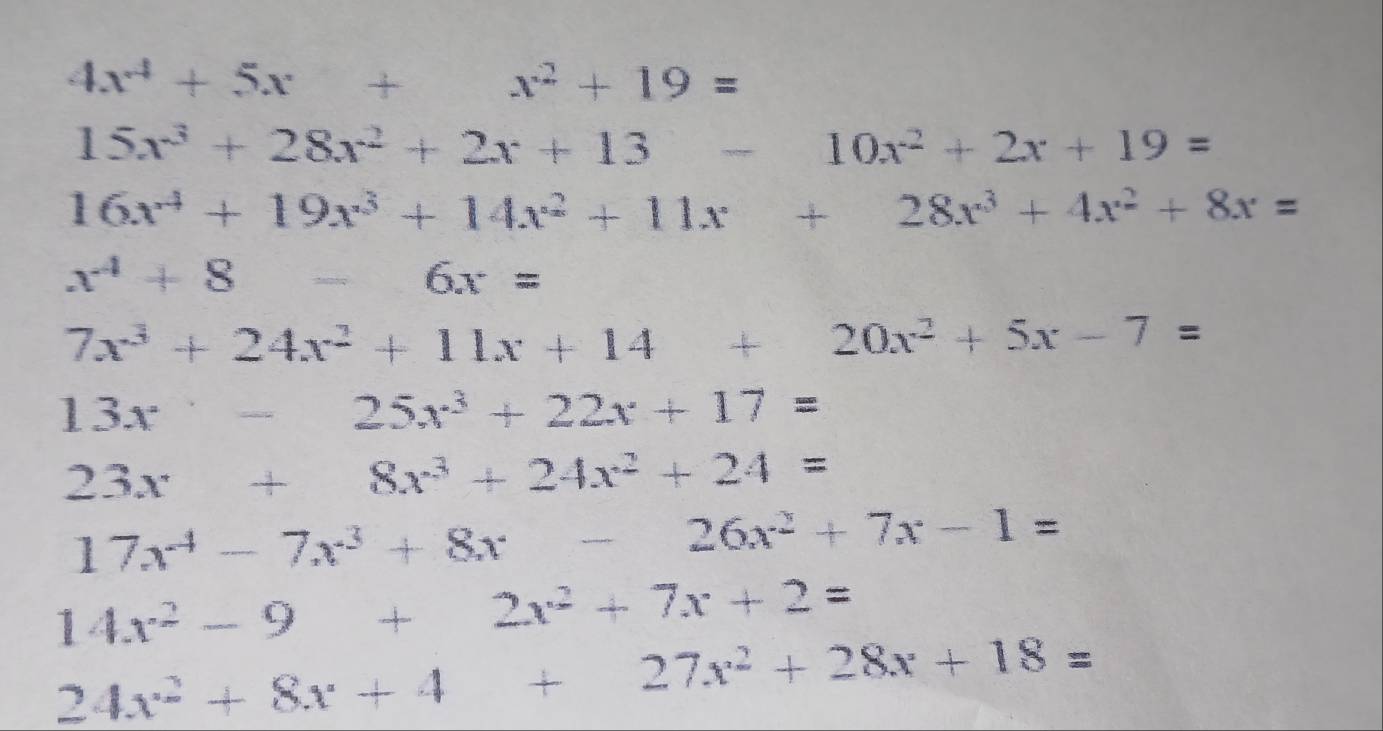 4x⁴ + 5x + x² + 19 =
15x³ + 28x² + 2x + 13 - 10x² + 2x + 19 =
16x⁴ + 19x³ + 14x² + 11x + 28x³ + 4x² + 8x =
x⁴ + 8 - 6x =
7x³ + 24x² + 11x + 14 + 20x² + 5x - 7 =
13x - 25x³ + 22x + 17 =
23x + 8x³ + 24x² + 24 =
17x⁴ - 7x³ + 8x - 26x² + 7x - 1 =
14x² - 9 + 2x² + 7x + 2 =
24x² + 8x + 4 + 27x² + 28x + 18 =